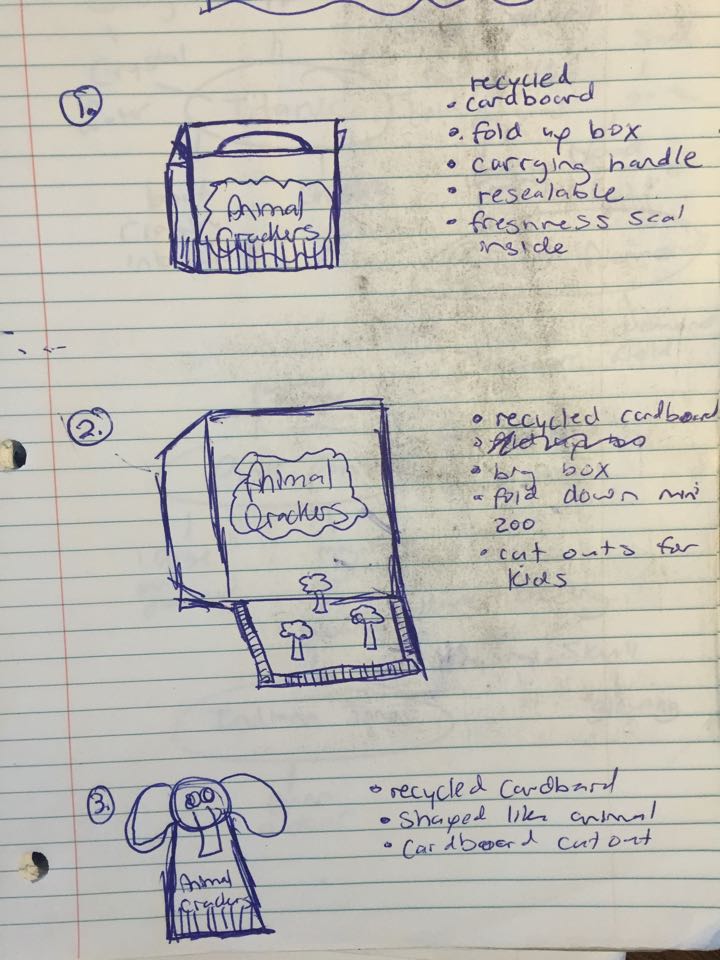 1.
Animal
Crackers
recycled
• cardboard
• fold up box
• carrying handle
• resealable
• freshness seal
inside
2.
Animal
Crackers
• recycled cardboard
• big box
• fold down mini
zoo
• cut outs for
kids
3.
Animal
Crackers
• recycled cardboard
• shaped like animal
• cardboard cut out